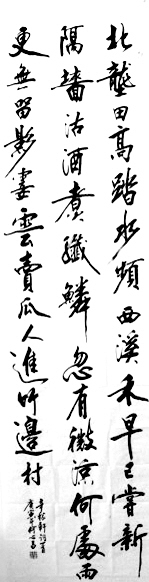 北壟田高踏水頻西溪禾早已嘗新
隔牆沽酒煮纖鱗忽有微涼何處雨
更無留影霎雲賣瓜人進竹邊村
辛稼軒詞